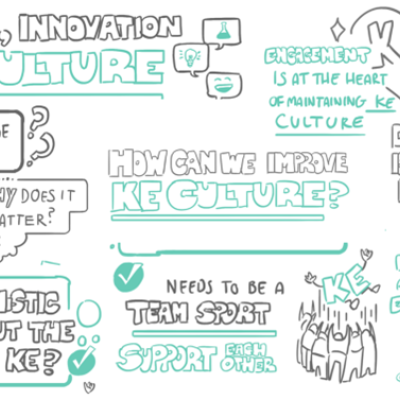 , INNOVATION
CULTURE
ENGAGEMENT
IS AT THE HEART
OF MAINTAINING KE
CULTURE
K
HOW CAN WE IMPROVE
KE CULTURE?
WHY DOES IT
MATTER?
NEEDS TO BE A
TEAM SPORT
SUPPORT EACH
OTHER
KE
ISTIC
OUT THE
KE?